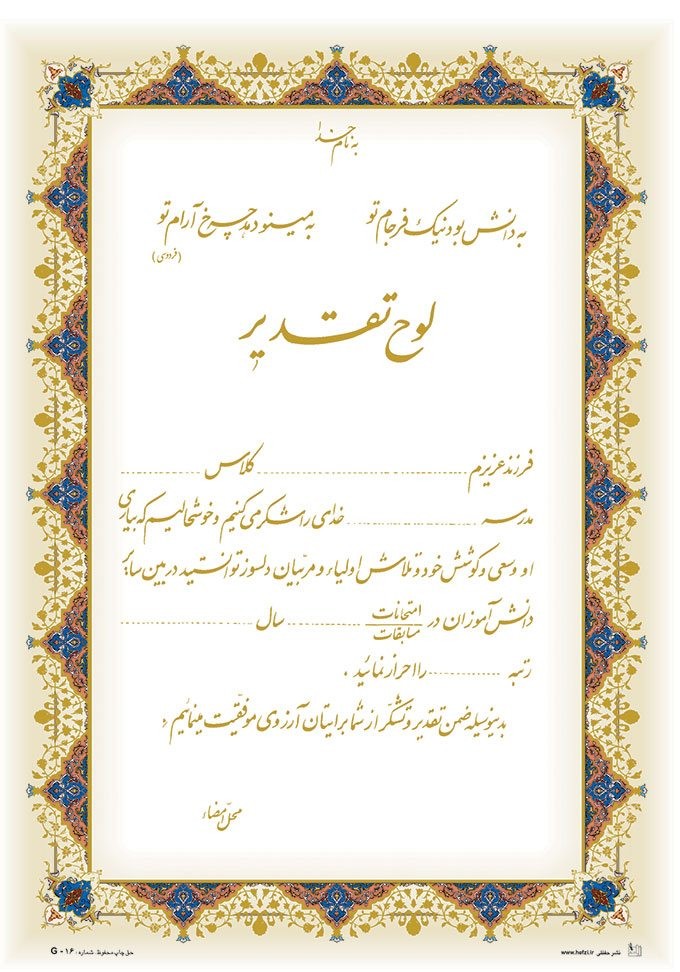 به نام خدا
به دانش بود نیک فرجام تو به مینو دهد چرخ آرام تو
(فردوسی)
لوح تقدیر
فرزند عزیزم .................... کلاس ............
مدرسه .................... خدای را شکر می کنیم و خوشحالیم که بیاری
او وسعی و کوشش خود و تلاش اولیاء و مربّیان دلسوز توانستید در بین سایر
دانش آموزان در امتحانات ............ سال ....................
مسابقات
رتبه ............ را احراز نمائید .
بدینوسیله ضمن تقدیر و تشکّر از شما برایتان آرزوی موفقیّت مینمائیم .
محل امضاء
حق چاپ محفوظ. شماره : G - ۱۶
نشر حفظی www.hefzi.ir